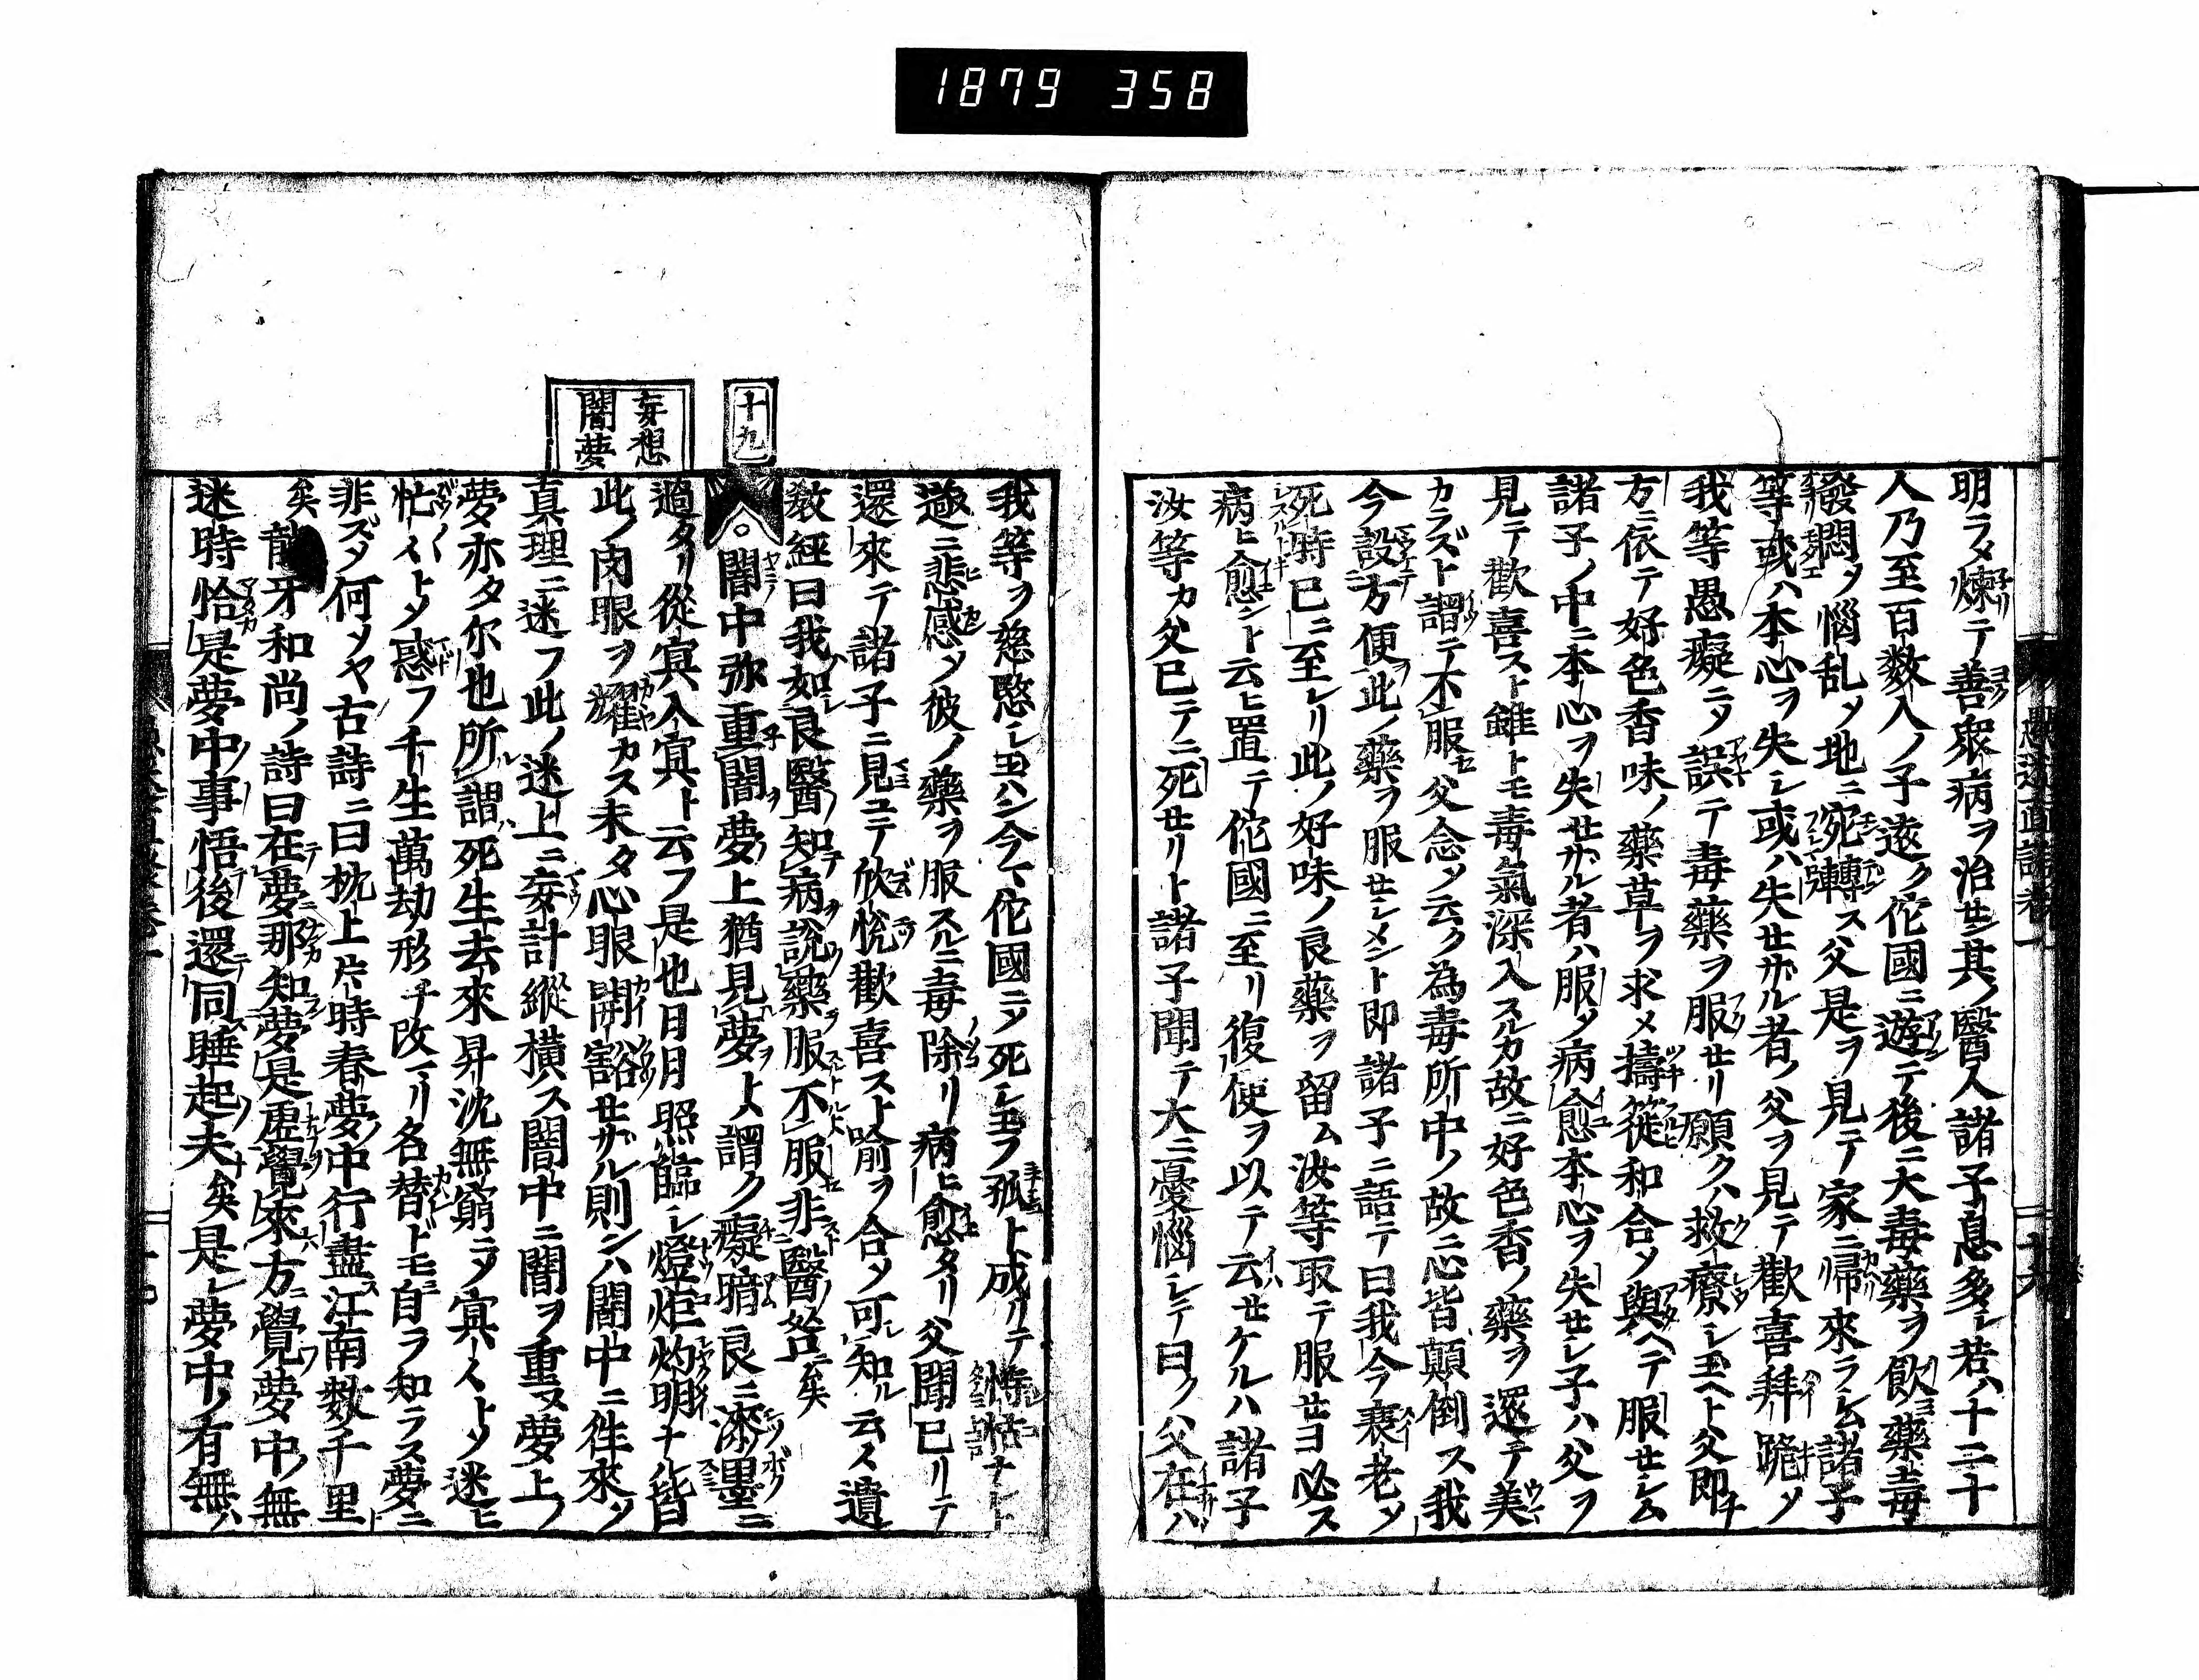 1879 358
明ラメ煉テ善衆病ヲ治セシ其ノ醫人諸子息多シ若ハ十二十
人乃至百数人ノ子遠ク佗國ニ遊テ後ニ大毒藥ヲ飲藥毒
發悶メ惱乱メ地ニ宛轉ス父是ヲ見テ家ニ歸來ラシム諸子
等或ハ本心ヲ失レ或ハ失セサル者ノ父ヲ見テ歡喜拜跪メ
我等愚癡ニメ誤テ毒藥ヲ服セリ願クハ救療シ玉ヘト父即
方ニ依テ好色香味ノ藥草ヲ求メ擣簁和合メ與ヘテ服セシム
諸子ノ中ニ本心ヲ失セサル者ハ服メ病愈本心ヲ失セレ子ハ父ヲ
見テ歡喜スト雖トモ毒氣深入スルカ故ニ好色香ノ藥ヲ還テ美
カラズト謂テ不服父念メ云ク為毒所中ノ故ニ心皆顛倒ス我
今設方便此ノ藥ヲ服セシメント即諸子ニ語テ曰我今衰老メ
死時已ニ至レリ此ノ好味ノ良藥ヲ留ム汝等取テ服セヨ必ス
病ヒ愈シト云ヒ置テ佗國ニ至リ復使ヲ以テ云セケルハ諸子
汝等カ父已テニ死セリト諸子聞テ大ニ憂惱シテ曰ク父在ハ
十九
妄想
闇夢
我等ヲ慈愍シ玉ハン今マ佗國ニメ死レ玉フ孤ト成リテ恃怙ナシト
遂ニ悲感メ彼ノ藥ヲ服スルニ毒除リ病ヒ愈タリ父聞已リテ
還來テ諸子ニ見ユテ欣悦歡喜スト喩ヲ合メ可知ル云々遺
敎經曰我如良醫知病說藥服不服非醫咎矣
○闇中弥重闇夢上猶見夢ヲト謂ク癡暗良ニ漆墨ニ
過タリ從冥入冥ト云フ是也日月照臨シ燈炬灼明ナル皆
此ノ肉眼ヲ耀カス未タ心眼開豁セサル則ンハ闇中ニ徃來メ
真理ニ迷フ此ノ迷上ニ妄計縱横ス闇中ニ闇ヲ重又夢上ノ
夢亦タ尓也所謂死生去來昇沈無窮ニメ冥々トメ迷ヒ
忙々トメ惑フ千生萬劫形チ改マリ名替ドモ自ラ知ラス夢ニ
非ズメ何メヤ古詩ニ曰枕上片時春夢中行盡江南数千里
矣龍牙和尚ノ詩曰在夢那知夢是虛覺來方覺夢中無
迷時恰是夢中事悟後還同睡起夫矣是レ夢中ノ有無ハ